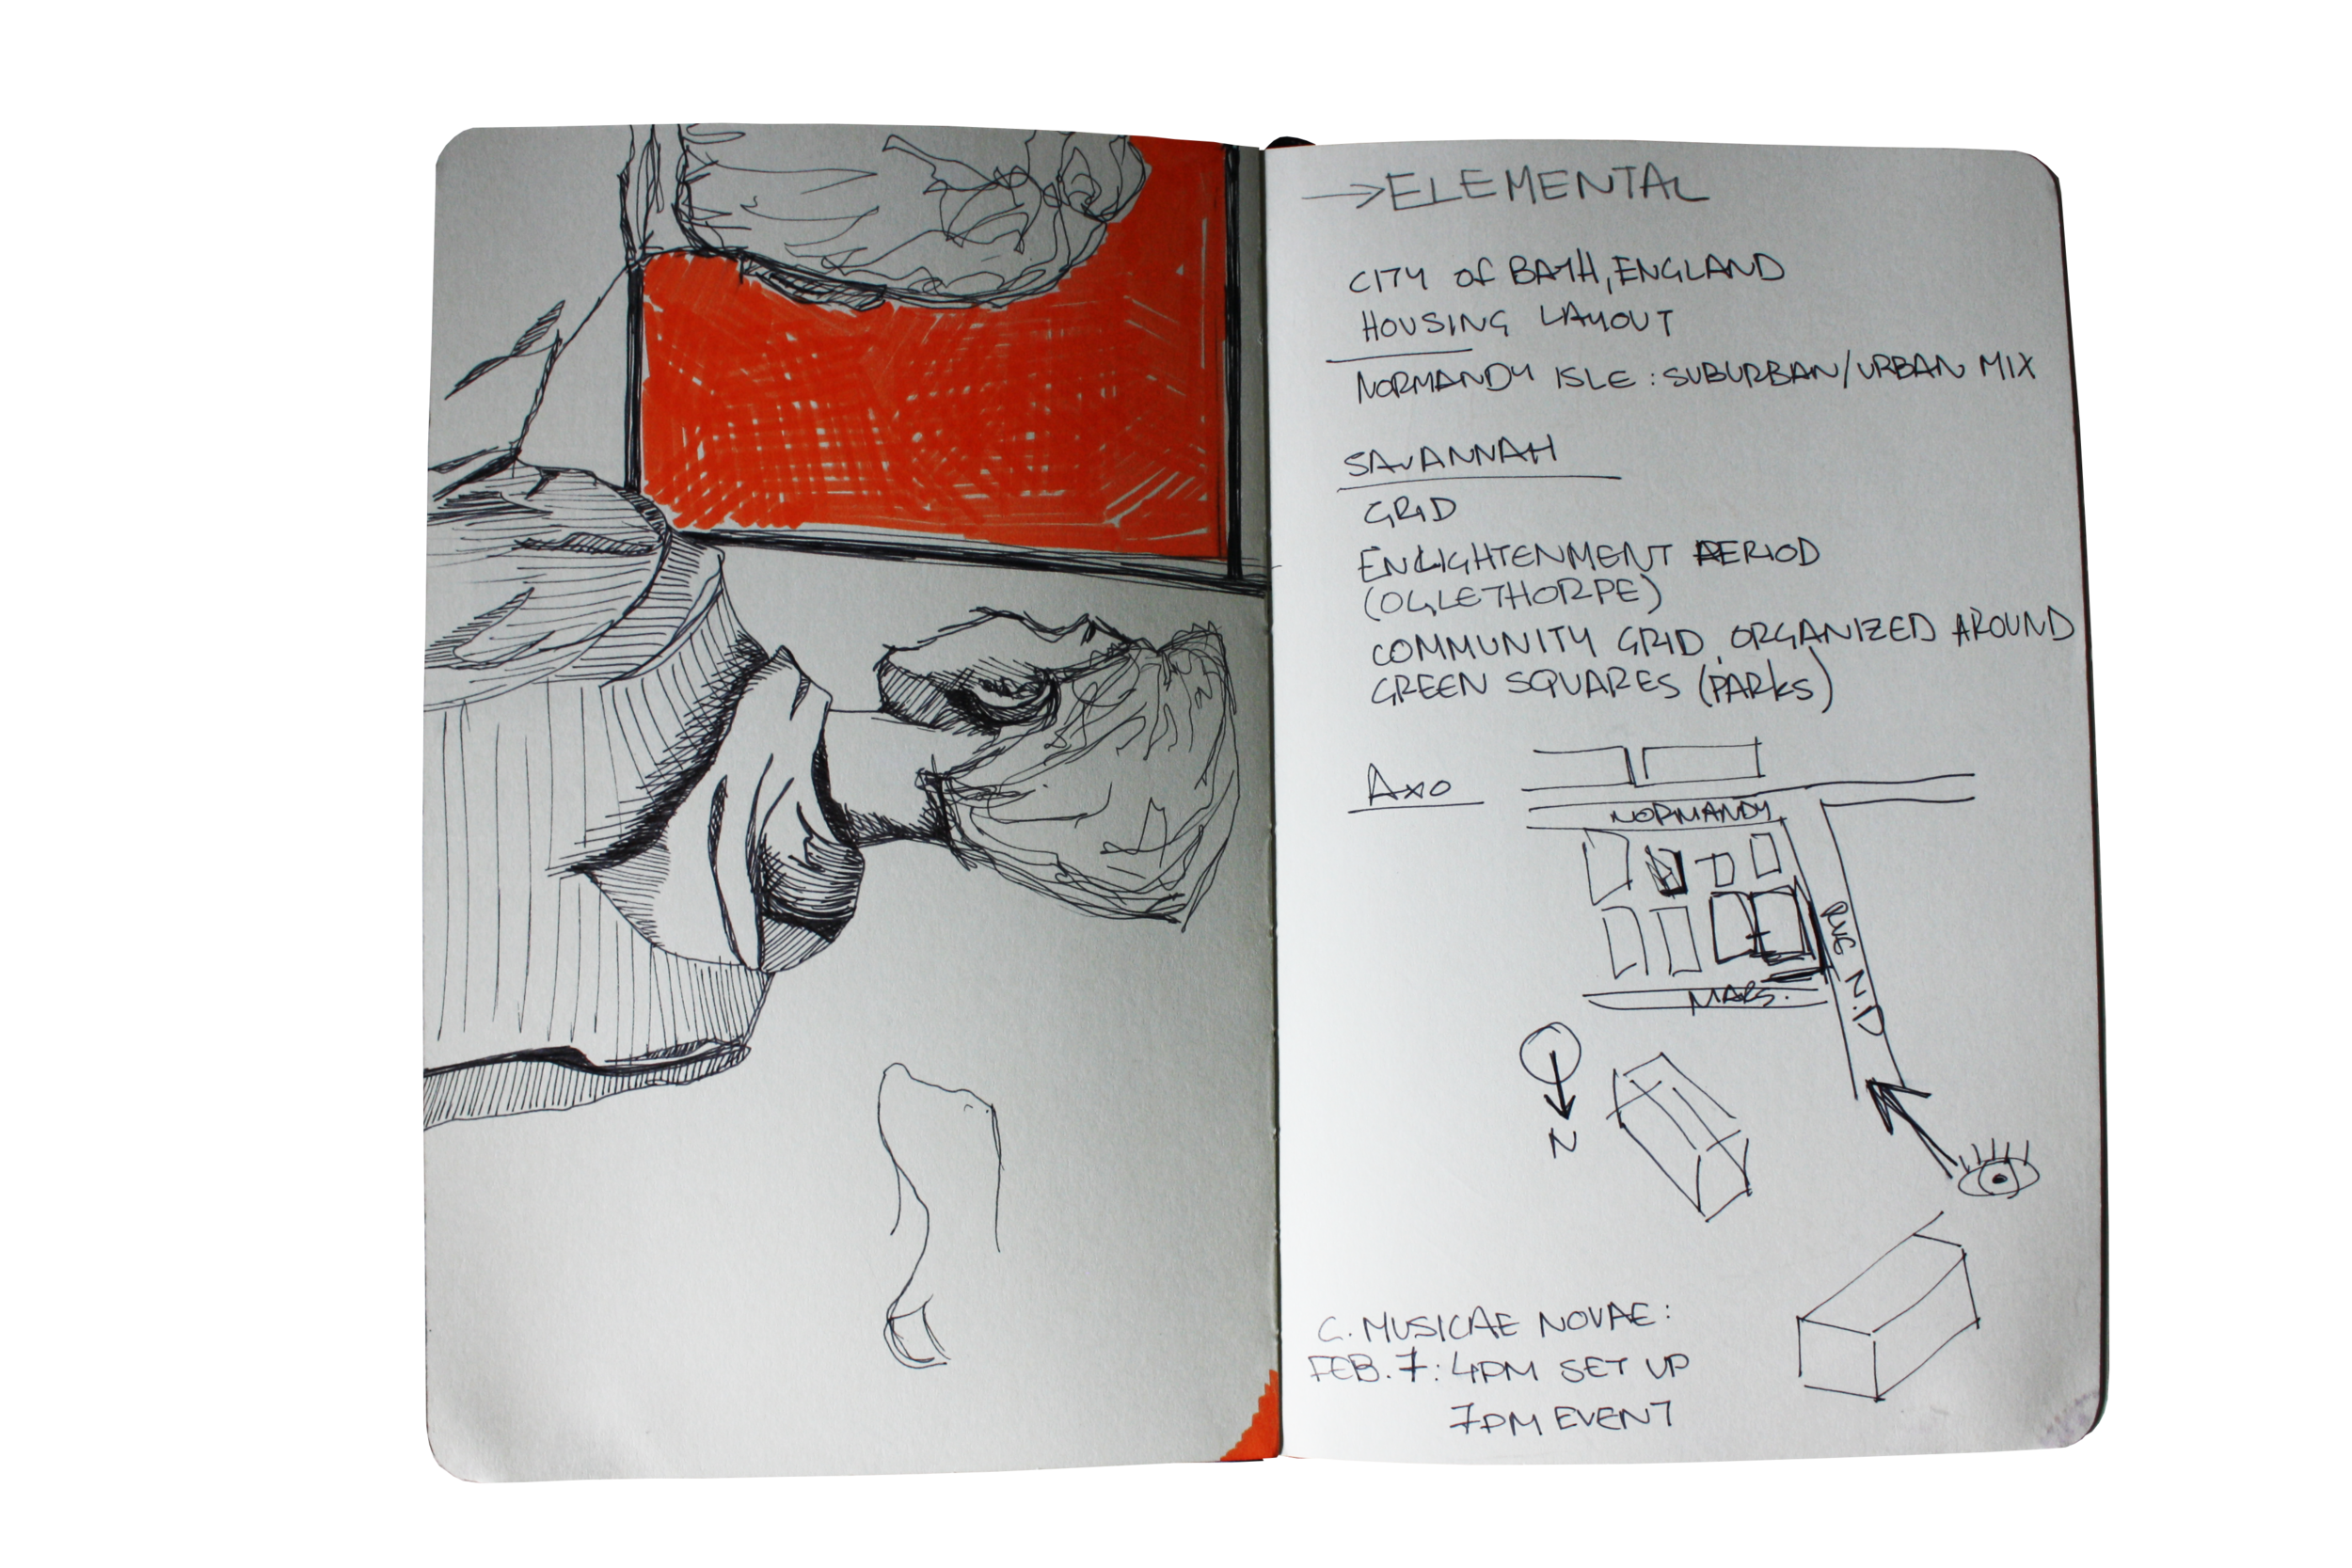 →ELEMENTAL
CITY of BATH, ENGLAND
HOUSING LAYOUT
NORMANDY ISLE : SUBURBAN/URBAN MIX
SAVANNAH
GRID
ENLIGHTENMENT PERIOD
(OGLETHORPE)
COMMUNITY GRID ORGANIZED AROUND
GREEN SQUARES (PARKS)
AXO
NORMANDY
RUE N.D
MARS.
N
C. MUSICAE NOVAE:
FEB. 7: 4PM SET UP
7PM EVENT